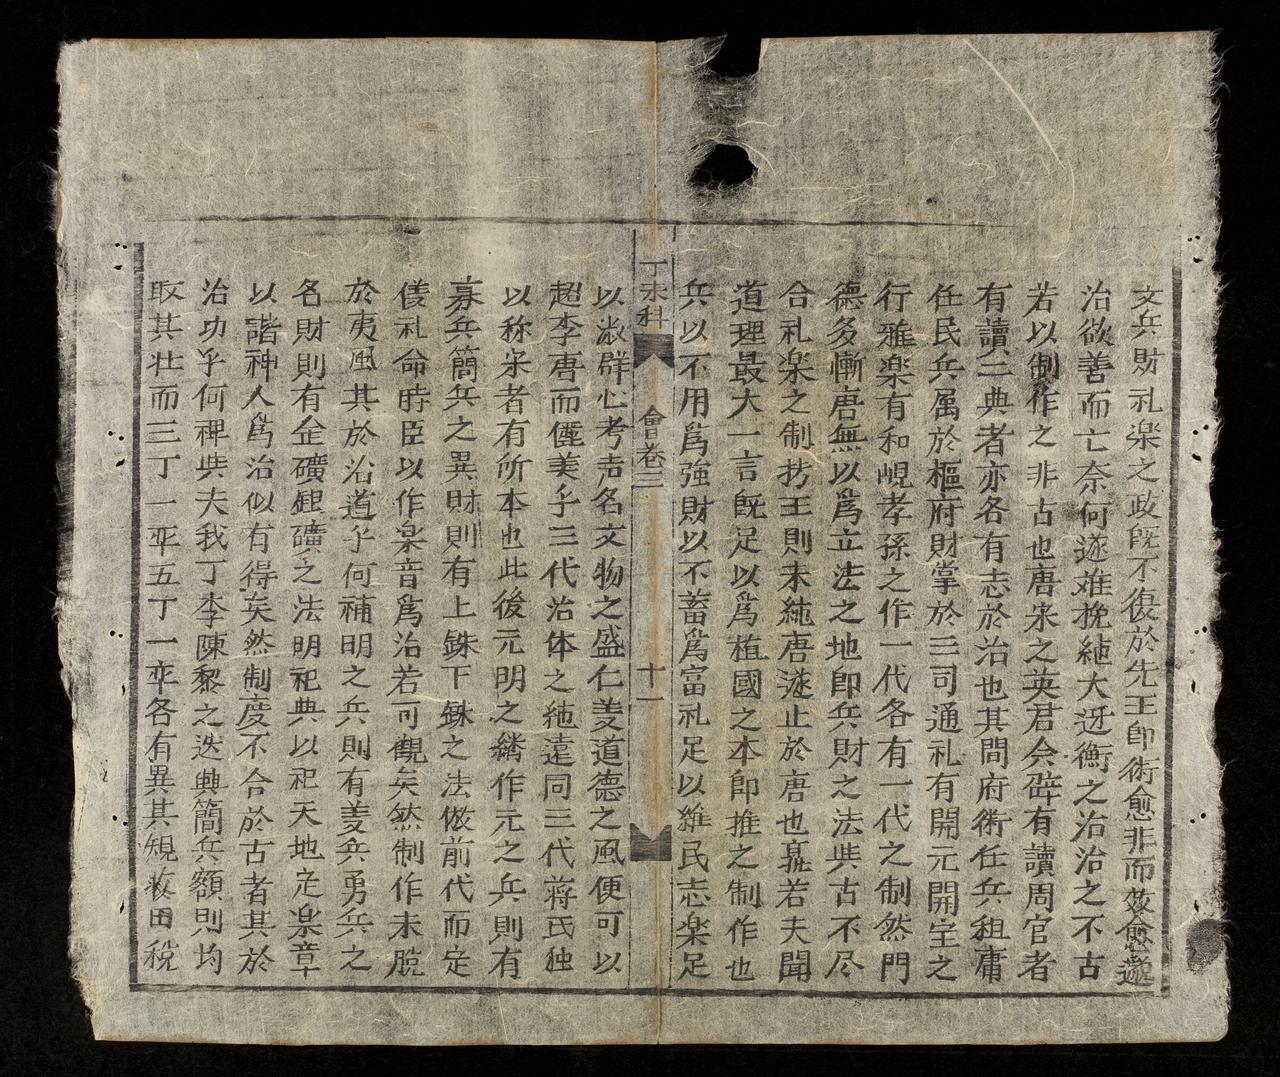 文兵財礼楽之政既不復於先王即術愈非而效愈邈
治欲善而亡奈何邃难挽絁大迓衡之治治之不古
若以制作之非古也唐宋之英君㑹辟有讀周官者
有讀二典者亦各有志於治也其問府術任兵租庸
任民兵属於樞府財掌於三司通礼有開元開宝之
行雅楽有和峴孝孫之作一代各有一代之制然門
德多慚唐無以為立法之地即兵財之法些古不尽
合礼楽之制扵王則未純唐遂止於唐也𡨴若夫聞
道理最大一言既足以為植國之本即推之制作也
兵以不用為強財以不蓄為富礼足以維民志楽足
丁未科 會卷三 十一
以淑群心考声名文物之盛仁義道德之風便可以
超李唐而僊美乎三代治体之純遠同三代蔣氏独
以称宋者有所本也此後元明之繼作元之兵則有
募兵簡兵之異財則有上銖下銖之法倣前代而定
儀礼命時臣以作楽音為治若可觀矣然制作未脱
於夷風其於治道乎何補明之兵則有義兵勇兵之
名財則有金礦銀礦之法明祀典以祀天地定楽章
以諧神人為治似有得矣然制度不合於古者其於
治功乎何裨些夫我丁李陳黎之迭興簡兵額則均
取其壮而三丁一卒五丁一卒各有異其規收田税